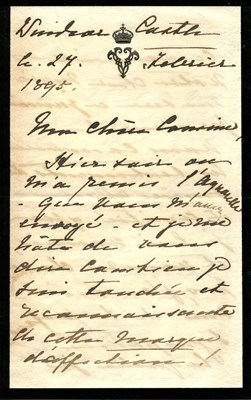 Windsor Castle
le. 27. Février
1895.
Ma chère Cousine,
Hier soir on
m'a remis l'aquarelle
- que vous m'avez
envoyé - et je me
hâte de vous
dire combien je
suis touchée et
reconnaissante
de cette marque
d'affection!